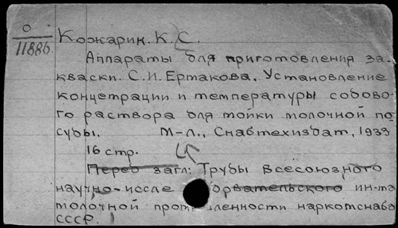 0
11886
Кожарин. К. С.
Аппараты для приготовления за-
кваски С.И. Ертакова. Установление
концетрации и температуры содово-
го раствора для мойки молочной по-
суды. М-л., Снабтехиздат, 1933
16 стр.
Перед загл: Трубы Всесоюзного
научно-иссле довательского ин-та
молочной промышленности наркотснаба
СССР.